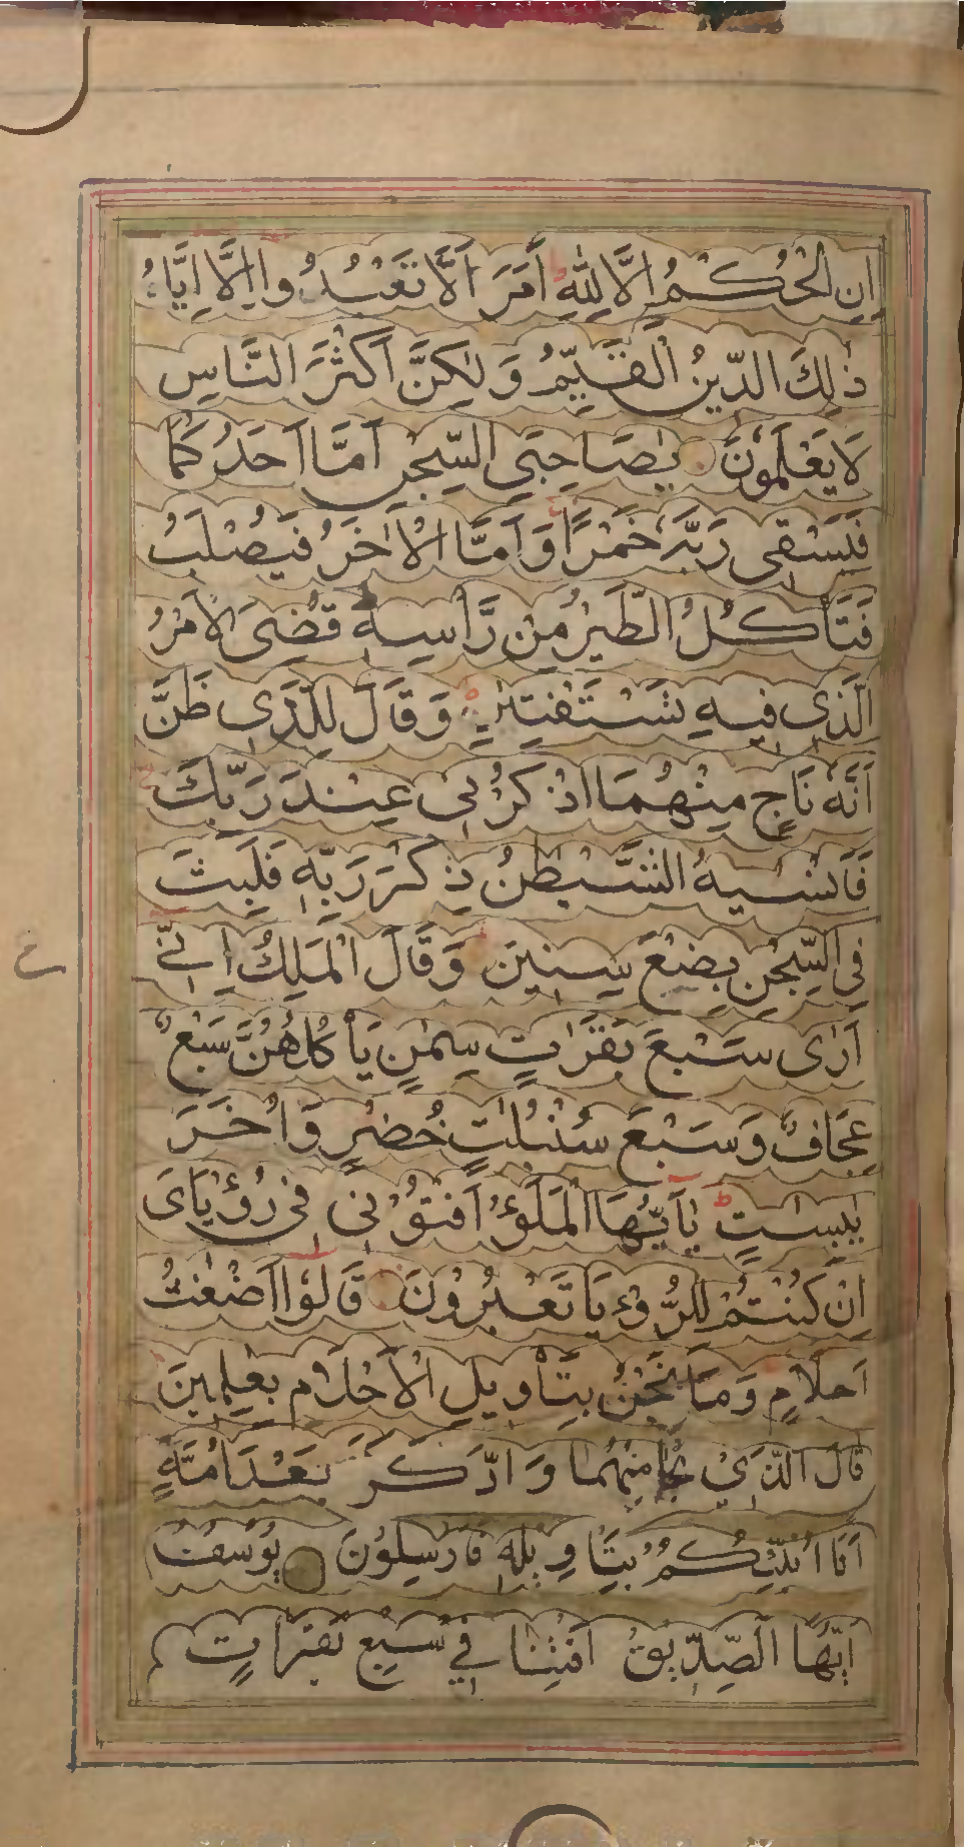 اِنِ الْحُكْمُ اِلَّا لِلّٰهِ اَمَرَ اَلَّا تَعْبُدُوا اِلَّا اِيَّاهُ
ذٰلِكَ الدِّينُ الْقَيِّمُ وَلٰكِنَّ اَكْثَرَ النَّاسِ
لَا يَعْلَمُونَ يٰصَاحِبَيِ السِّجْنِ اَمَّا اَحَدُكُمَا
فَيَسْقِى رَبَّهٗ خَمْرًا وَاَمَّا الْاٰخَرُ فَيُصْلَبُ
فَتَأْكُلُ الطَّيْرُ مِنْ رَّأْسِهٖ قُضِىَ الْاَمْرُ
الَّذِى فِيهِ تَسْتَفْتِيٰنِ وَقَالَ لِلَّذِى ظَنَّ
اَنَّهٗ نَاجٍ مِنْهُمَا اذْكُرْنِى عِنْدَ رَبِّكَ
فَاَنْسٰيهُ الشَّيْطٰنُ ذِكْرَ رَبِّهٖ فَلَبِثَ
فِى السِّجْنِ بِضْعَ سِنِينَ وَقَالَ الْمَلِكُ اِنِّىْ
اَرٰى سَبْعَ بَقَرٰتٍ سِمٰنٍ يَأْكُلُهُنَّ سَبْعٌ
عِجَافٌ وَسَبْعَ سُنْبُلٰتٍ خُضْرٍ وَاُخَرَ
يٰبِسٰتٍ يٰاَيُّهَا الْمَلَؤُ اَفْتُوْنِى فِى رُؤْيَاىَ
اِنْ كُنْتُمْ لِلرُّءْيَا تَعْبُرُوْنَ قَالُوْا اَضْغٰثُ
اَحْلَامٍ وَمَا نَحْنُ بِتَأْوِيلِ الْاَحْلَامِ بِعٰلِمِينَ
قَالَ الَّذِيْ نَجَا مِنْهُمَا وَادَّكَرَ بَعْدَ اُمَّةٍ
اَنَا اُنَبِّئُكُمْ بِتَاْوِيْلِهٖ فَاَرْسِلُوْنَ يُوْسُفُ
اَيُّهَا الصِّدِّيْقُ اَفْتِنَا فِيْ سَبْعِ بَقَرَاتٍ
ع